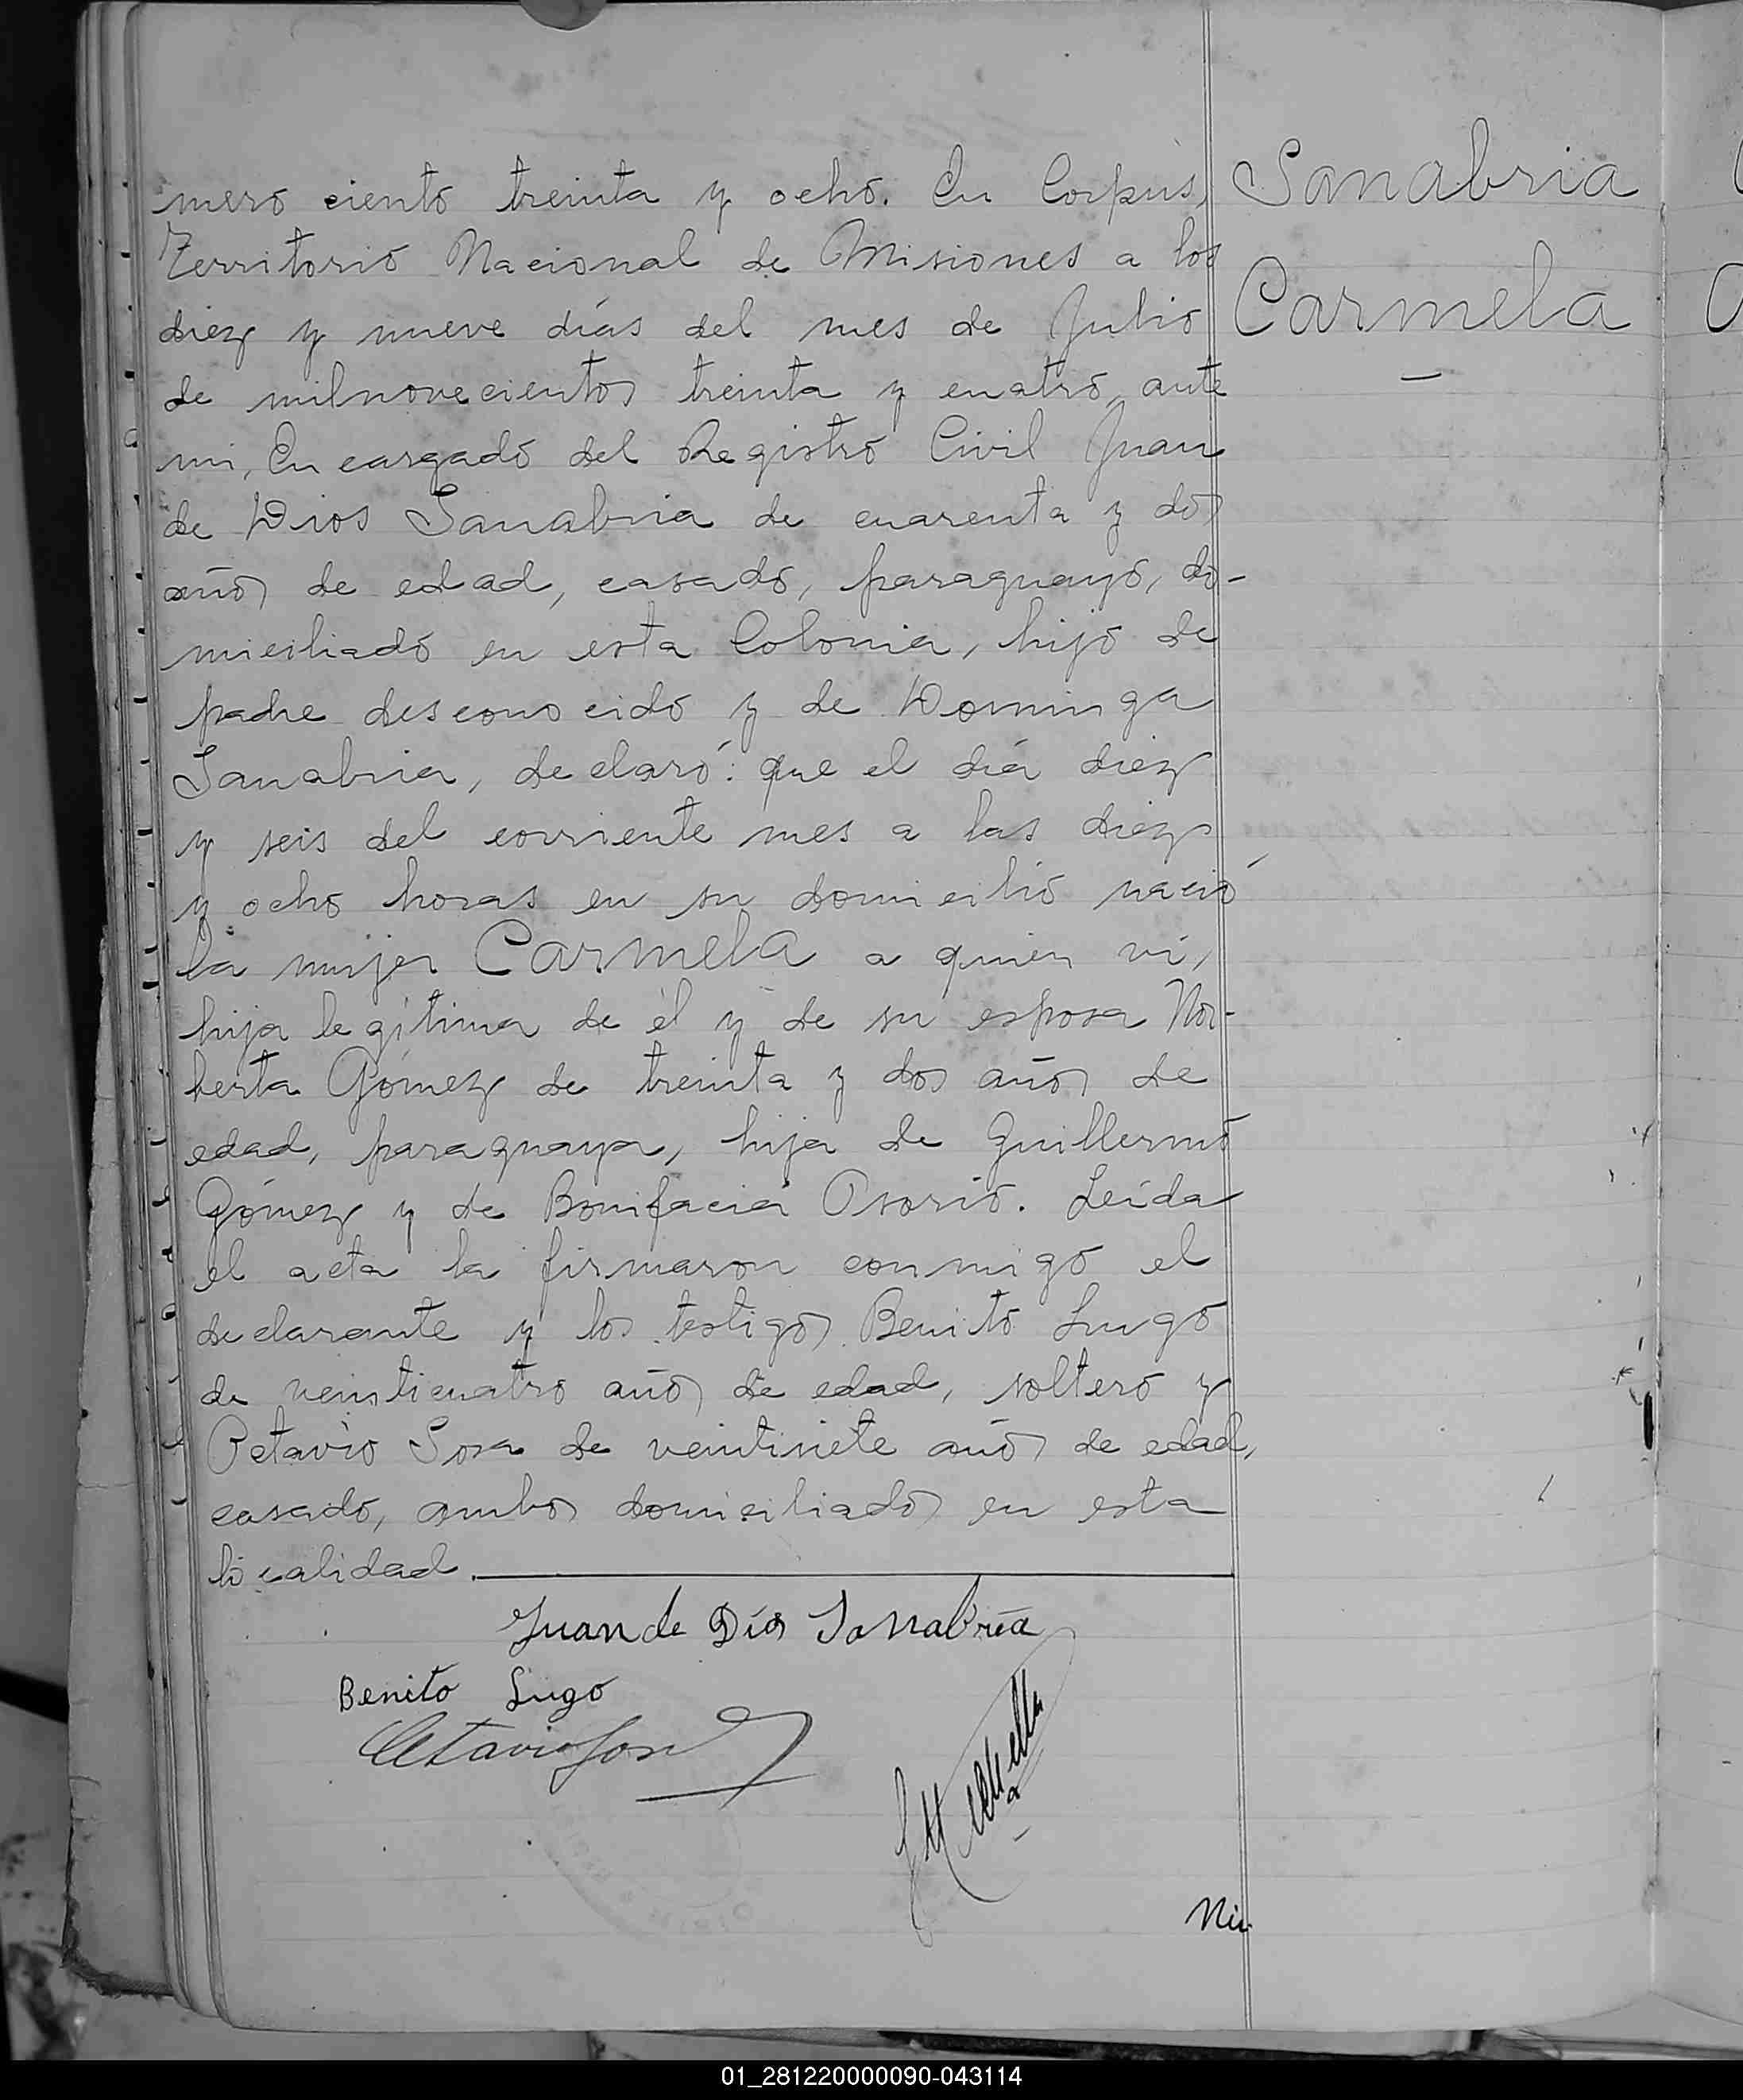 mero ciento treinta y ocho. En Corpus,
Territorio Nacional de Misiones a los
diez y nueve días del mes de Julio
de milnovecientos treinta y cuatro, ante
mi, Encargado del Registro Civil Juan
de Dios Sanabria de cuarenta y dos
años de edad, casado, paraguayo, do-
miciliado en esta Colonia, hijo de
padre desconocido y de Dominga
Sanabria, declaró: que el día diez
y seis del corriente mes a las diez
y ocho horas en su domicilio nació
la mujer Carmela a quien ví,
hija legítima de él y de su esposa Nor-
berta Gómez de treinta y dos años de
edad, paraguaya, hija de Guillermo
Gómez y de Bonifacia Osorio. Leída
el acta la firmaron conmigo el
declarante y los testigos Benito Lugo
de veinticuatro años de edad, soltero y
Octavio Sosa de veintisiete años de edad,
casado, ambos domiciliados en esta
localidad.
Sanabria
Carmela
Juan de Dios Sanabria
Benito Lugo
Octavio Sosa
Nú
01_281220000090-043114